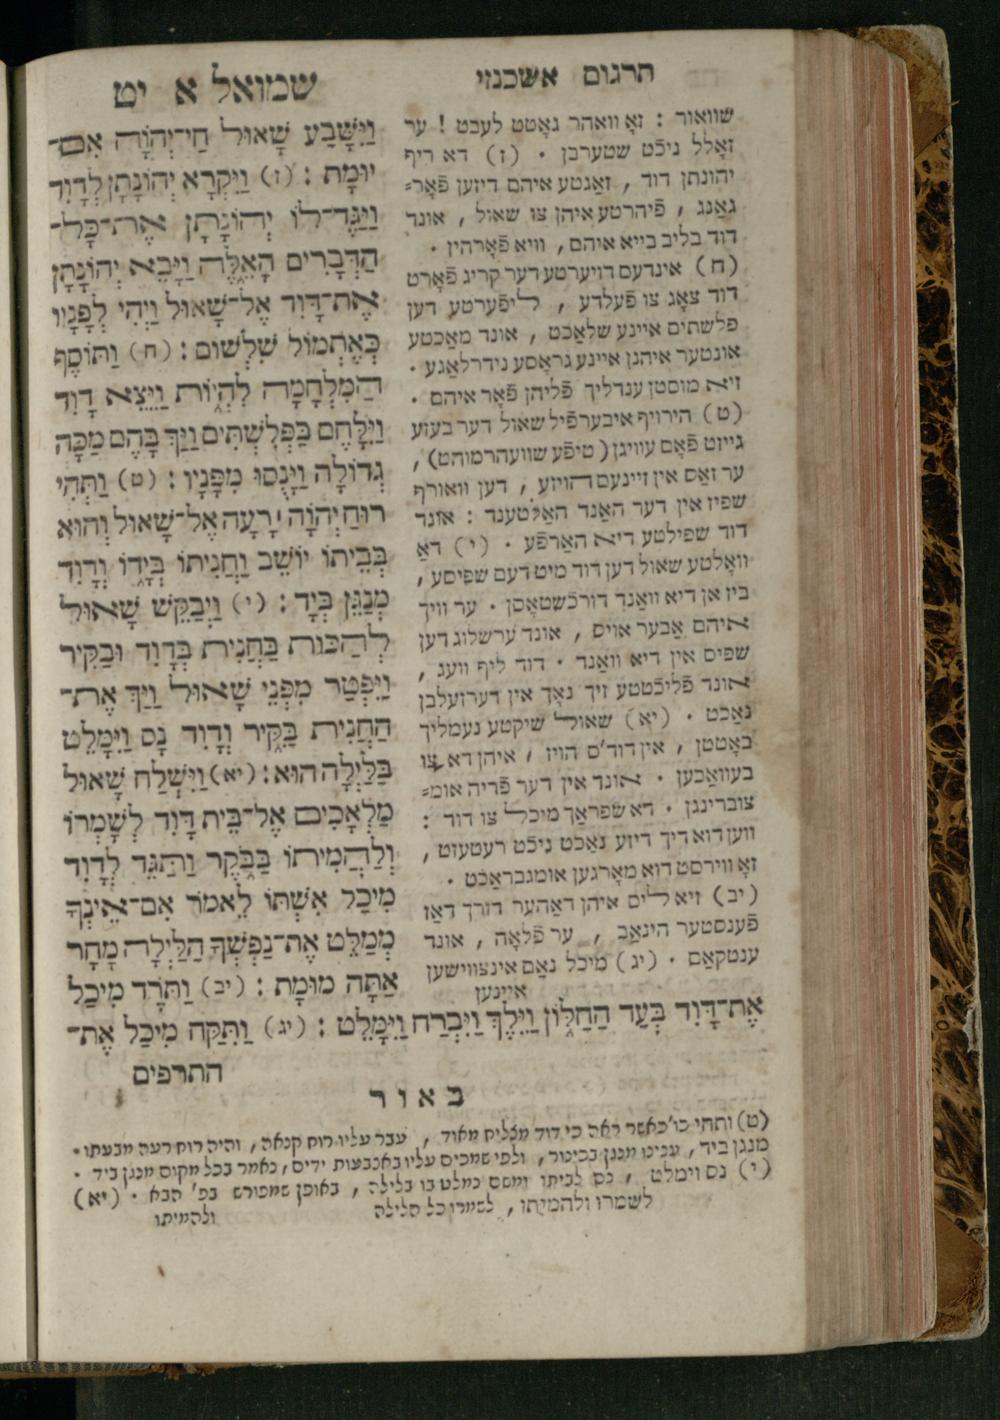 תרגום אשכנזי
שמואל א יט
שוואור : זאָ וואהר גאָטט לעבט ! ער
זאָלל ניכֿט שטערבן . (ז) דא ריף
יהונתן דוד , זאַגטע איהם דיזען פֿאָר=
גאַנג , פֿיהרטע איהן צו שאול , אונד
דוד בליב בייא איהם , וויא פֿאָרהין .
(ח) אינדעם דויערטע דער קריג פֿאָרט
דוד צאָג צו פֿעלדע , ליפֿערטע דען
פלשתים איינע שלאַכט , אונד מאַכטע
אונטער איהנן איינע גראָסע נידרלאַגע .
זיא מוסטן ענדליך פֿליהן פֿאָר איהם .
(ט) הירויף איבערפֿיל שאול דער בעזע
גייזט פֿאָם עוויגן (טיפֿע שוועהרמוהט) ,
ער זאַס אין זיינעם הויזע , דען וואורף
שפיז אין דער האַנד האַלטענד : אונד
דוד שפילטע דיא האַרפֿע . (י) דאַ
וואָלטע שאול דען דוד מיט דעם שפיסע ,
ביז אן דיא וואַנד דורכֿשטאָסן . ער וויך
איהם אַבער אויס , אונד ערשלוג דען
שפיס אין דיא וואַנד . דוד ליף וועג ,
אונד פֿליכֿטטע זיך נאָך אין דערזעלבן
נאַכט . (יא) שאול שיקטע נעמליך
באָטטן , אין דוד'ס הויז , איהן דא צו
בעוואַכען . אונד אין דער פֿריה אומ=
צוברינגן . דא שפראַך מיכל צו דוד :
ווען דוא דיך דיזע נאַכט ניכֿט רעטעזט ,
זאָ ווירסט דוא מאָרגען אומגבראַכט .
(יב) זיא לים איהן דאַהער דורך דאַז
פֿענסטער הינאַב , ער פֿלאָה , אונד
ענטקאַם . (יג) מיכל נאַם אינצווישען
איינען
וַיִּשָּׁבַע שָׁאוּל חַי־יְהֹוָה אִם־
יוּמָת : (ז) וַיִּקְרָא יְהוֹנָתָן לְדָוִד
וַיַּגֶּד־לוֹ יְהוֹנָתָן אֵת־כָּל־
הַדְּבָרִים הָאֵלֶּה וַיָּבֵא יְהוֹנָתָן
אֶת־דָּוִד אֶל־שָׁאוּל וַיְהִי לְפָנָיו
כְּאֶתְמוֹל שִׁלְשׁוֹם : (ח) וַתּוֹסֶף
הַמִּלְחָמָה לִהְיוֹת וַיֵּצֵא דָוִד
וַיִּלָּחֶם בַּפְּלִשְׁתִּים וַיַּךְ בָּהֶם מַכָּה
גְדוֹלָה וַיָּנֻסוּ מִפָּנָיו : (ט) וַתְּהִי
רוּחַ יְהֹוָה ׀ רָעָה אֶל־שָׁאוּל וְהוּא
בְּבֵיתוֹ יוֹשֵׁב וַחֲנִיתוֹ בְּיָדוֹ וְדָוִד
מְנַגֵּן בְּיָד : (י) וַיְבַקֵּשׁ שָׁאוּל
לְהַכּוֹת בַּחֲנִית בְּדָוִד וּבַקִּיר
וַיִּפְטַר מִפְּנֵי שָׁאוּל וַיַּךְ אֶת־
הַחֲנִית בַּקִּיר וְדָוִד נָס וַיִּמָּלֵט
בַּלַּיְלָה הוּא : (יא) וַיִּשְׁלַח שָׁאוּל
מַלְאָכִים אֶל־בֵּית דָּוִד לְשָׁמְרוֹ
וְלַהֲמִיתוֹ בַּבֹּקֶר וַתַּגֵּד לְדָוִד
מִיכַל אִשְׁתּוֹ לֵאמֹר אִם־אֵינְךָ
מְמַלֵּט אֶת־נַפְשְׁךָ הַלַּיְלָה מָחָר
אַתָּה מוּמָת : (יב) וַתֹּרֶד מִיכַל
אֶת־דָּוִד בְּעַד הַחַלּוֹן וַיֵּלֶךְ וַיִּבְרַח וַיִּמָּלֵט : (יג) וַתִּקַּח מִיכַל אֶת־
התרפים
באור
(ט) ותהי כו' כאשר ראה כי דוד מצליח מאוד , עבר עליו רוח קנאה , והיה רוח רעה מבעתו .
מנגן ביד , ענינו מנגן בכינור , ולפי שמכים עליו באצבעות ידים , נאמר בכל מקום מנגן ביד .
(י) נס וימלט , נס לביתו ומשם נמלט בו בלילה , באופן שמפורש בפ' הבא . (יא)
לשמרו ולהמיתו , לשמרו כל הלילה
ולהמיתו